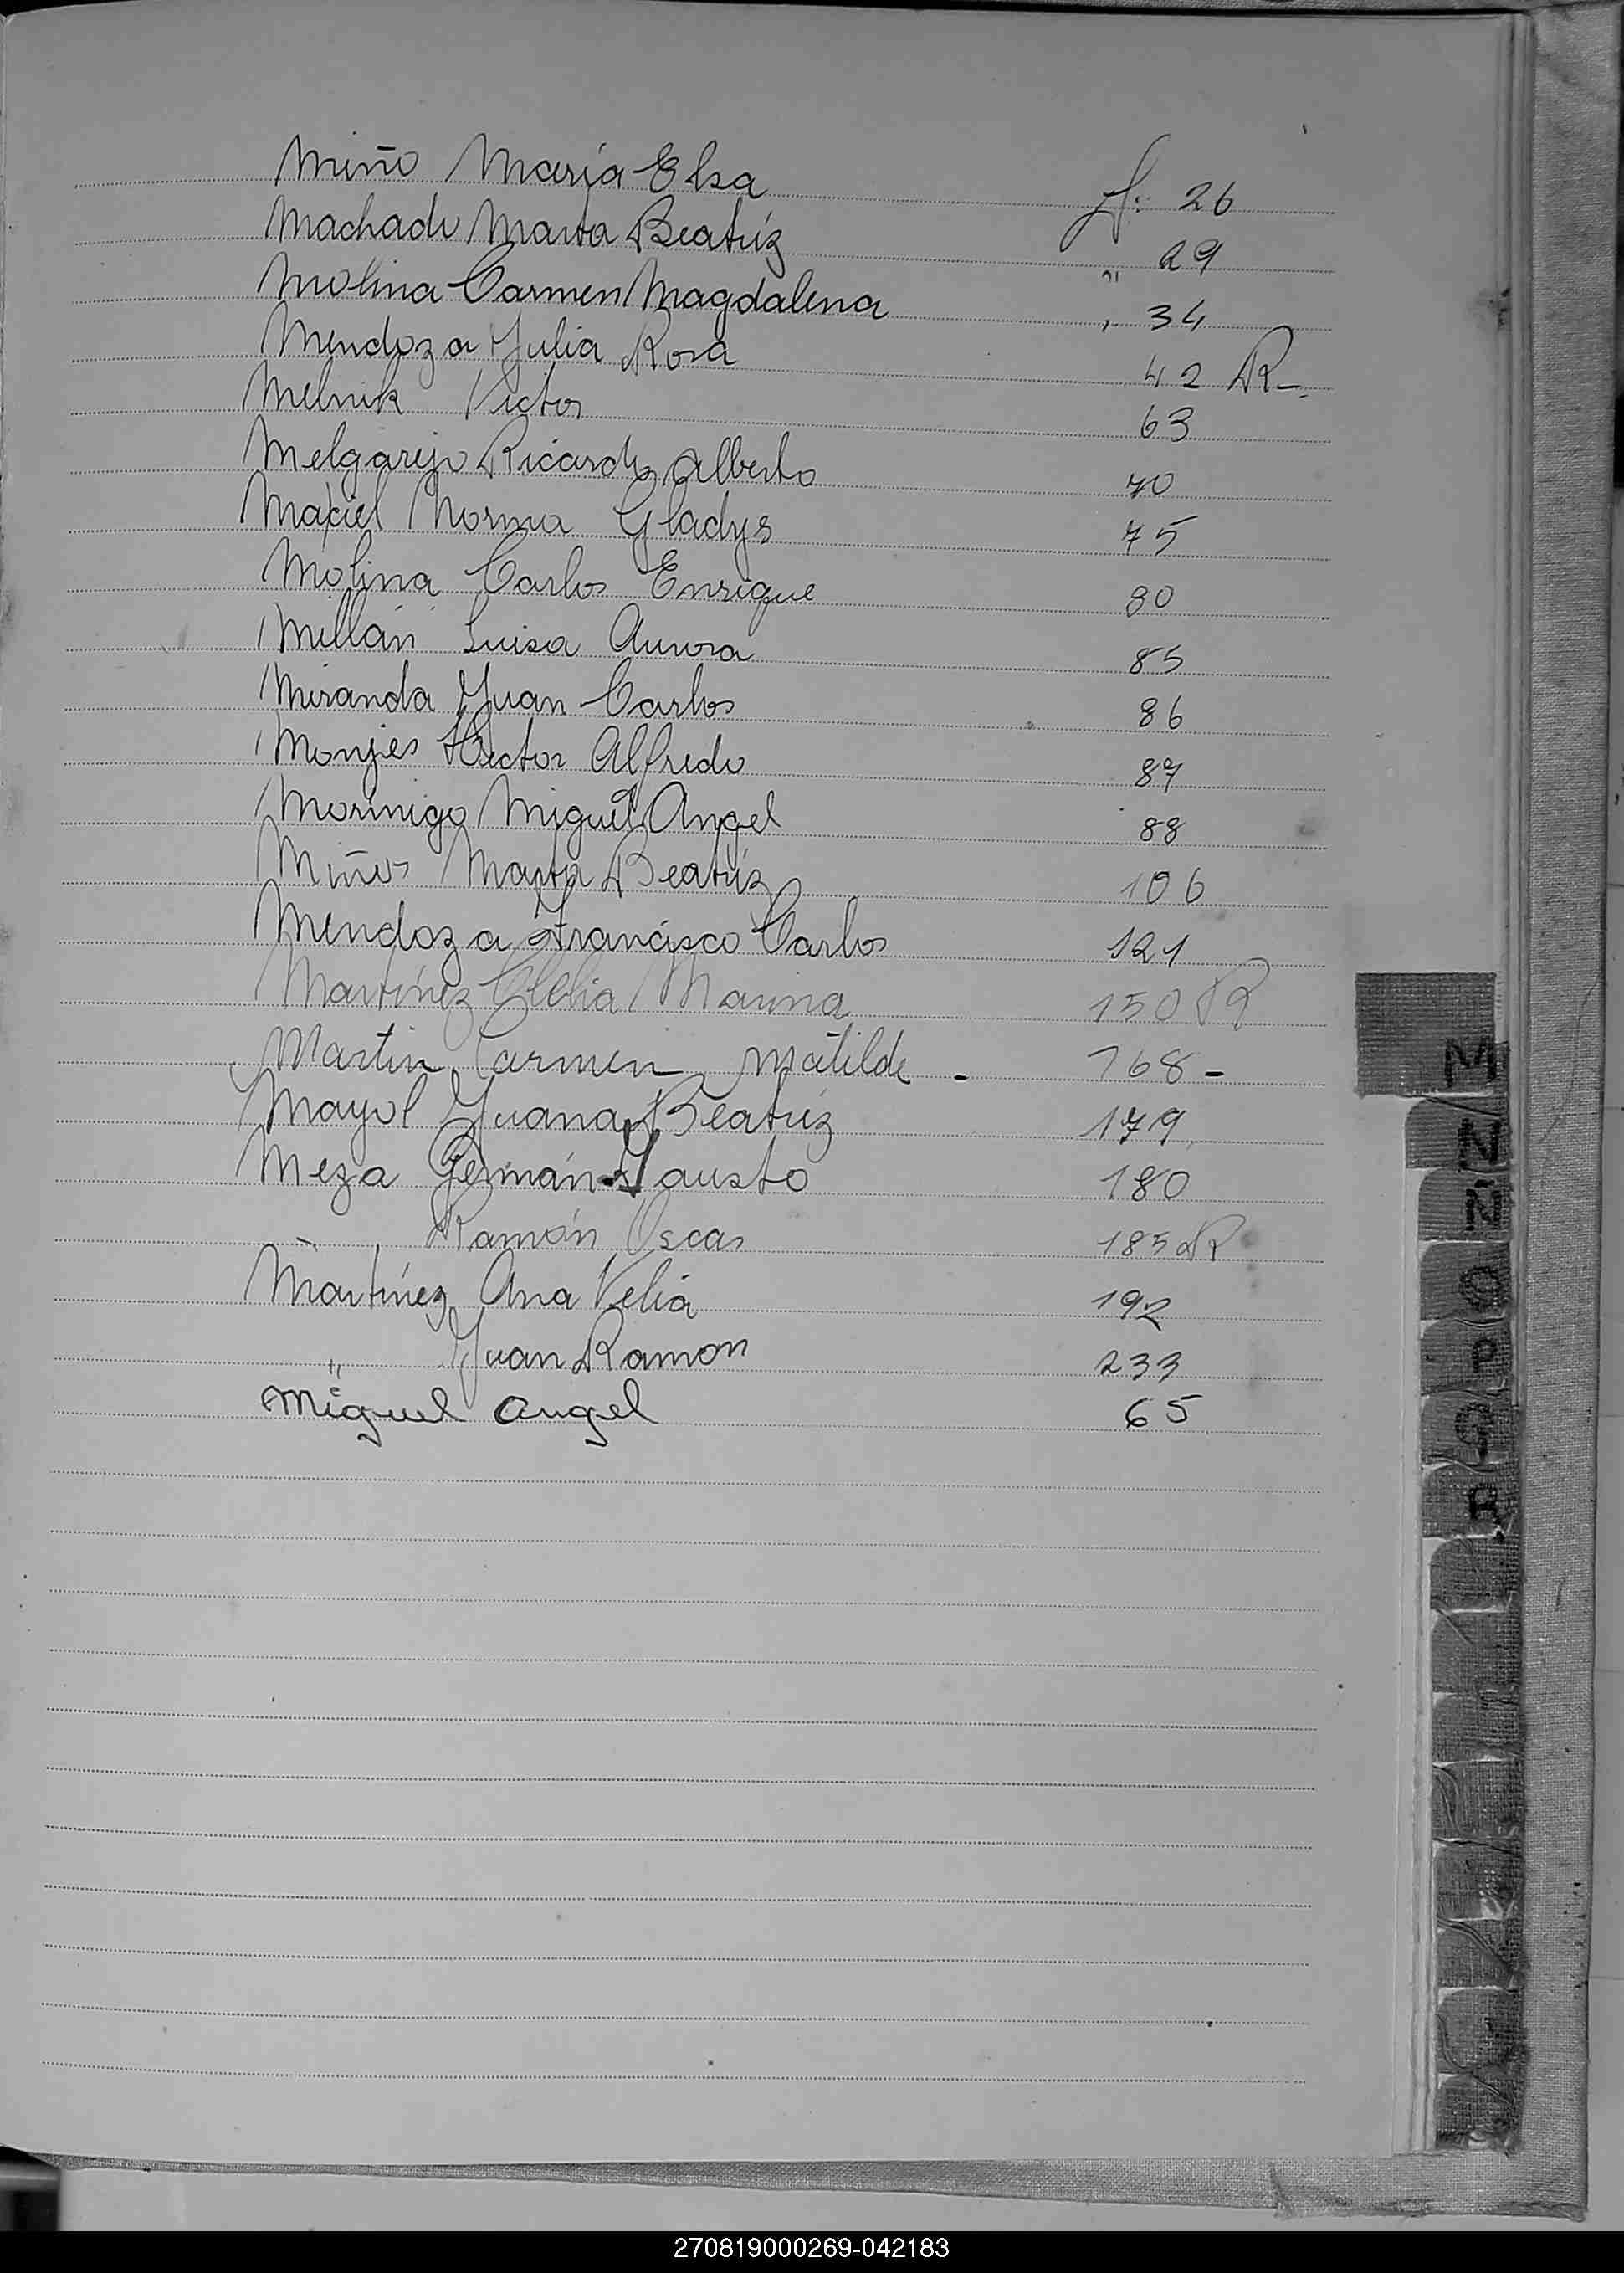 Miño María Elsa f: 26
Machado Marta Beatríz " 29
Molina Carmen Magdalena " 34
Mendoza Julia Rosa 42 R-
Melnik Victor 63
Melgarejo Ricardo Alberto 70
Maciel Norma Gladys 75
Molina Carlos Enrique 80
Millán Luisa Aurora 85
Miranda Juan Carlos 86
Monjes Hector Alfredo 87
Morinigo Miguel Angel 88
Miños Marta Beatríz 106
Mendoza Francisco Carlos 121
Martínez Clelia Marina 150 R
Martin Carmen Matilde - 168 -
Mayol Juana Beatríz 179
Meza Germán Fausto 180
" Ramón Oscar 185 R
Martínez Ana Velia 192
" Juan Ramon 233
Miguel Angel 65
M
N Ñ
O
P Q
R
270819000269-042183